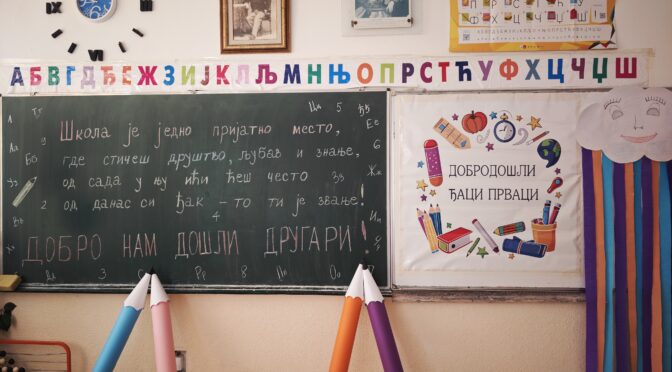 А Б В Г Д Ђ Е Ж З И Ј К Л Љ М Н Њ О П Р С Т Ћ У Ф Х Ц Ч Џ Ш
Школа је једно пријатно место,
где стичеш друштво, љубав и знање,
од сада у њу ићи ћеш често
од данас си ђак - то ти је звање!
ДОБРО НАМ ДОШЛИ ДРУГАРИ!
ДОБРОДОШЛИ
ЂАЦИ ПРВАЦИ